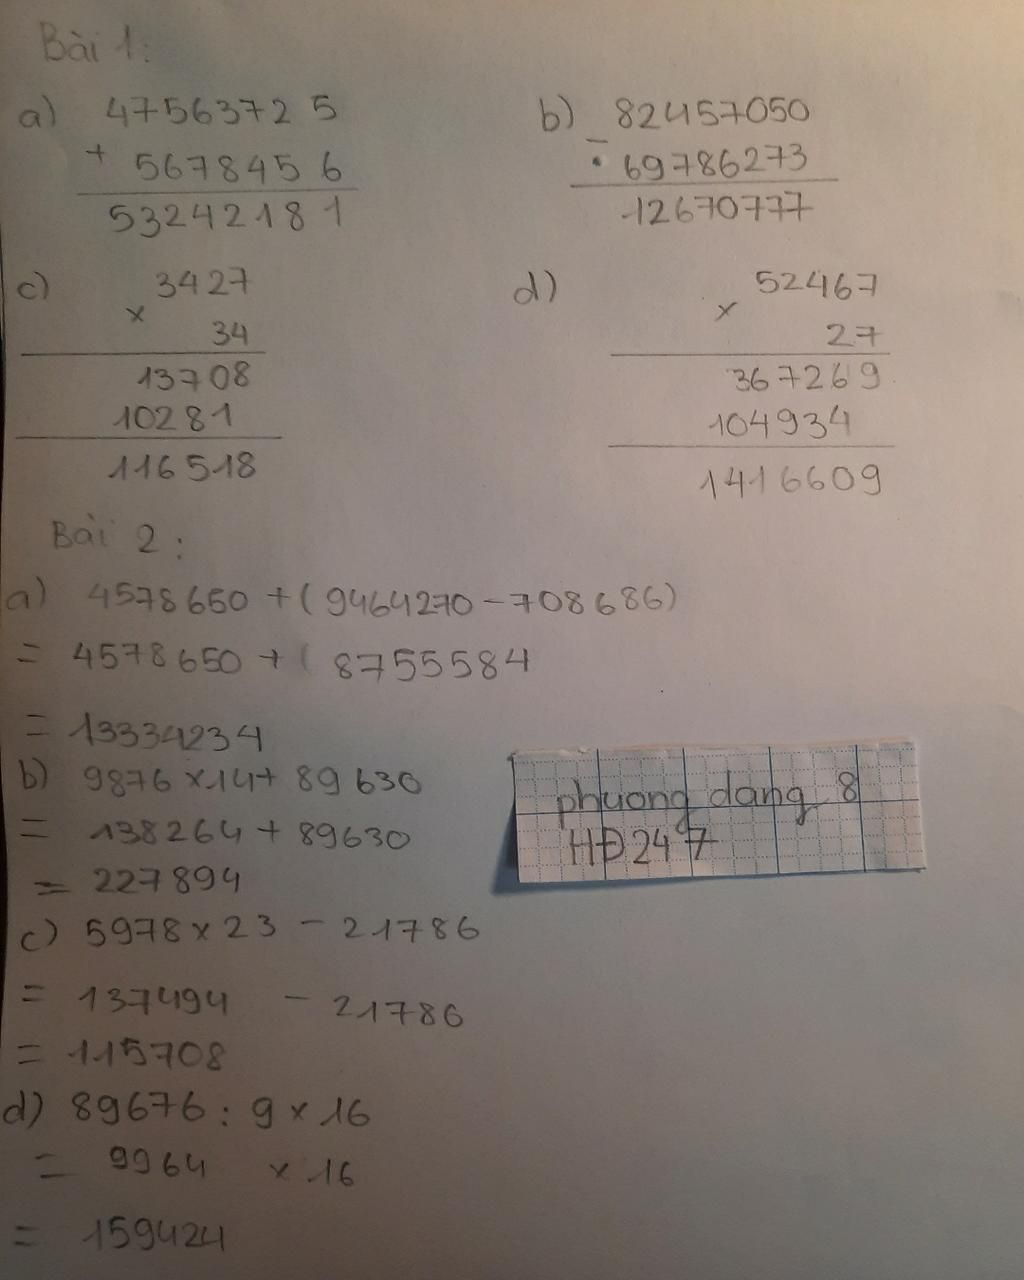 Bài 1:
a) 47563725
+ 5678456
53242181
b) 82457050
- 69786273
12670777
c) 3427
x 34
13708
10281
116518
d) 52467
x 27
367269
104934
1416609
Bài 2:
a) 4578650 + (9464270 - 708686)
= 4578650 + ( 8755584
= 13334234
b) 9876 x 14 + 89630
= 138264 + 89630
= 227894
c) 5978 x 23 - 21786
= 137494 - 21786
= 115708
d) 89676 : 9 x 16
= 9964 x 16
= 159424
phuong dang 8
HĐ247